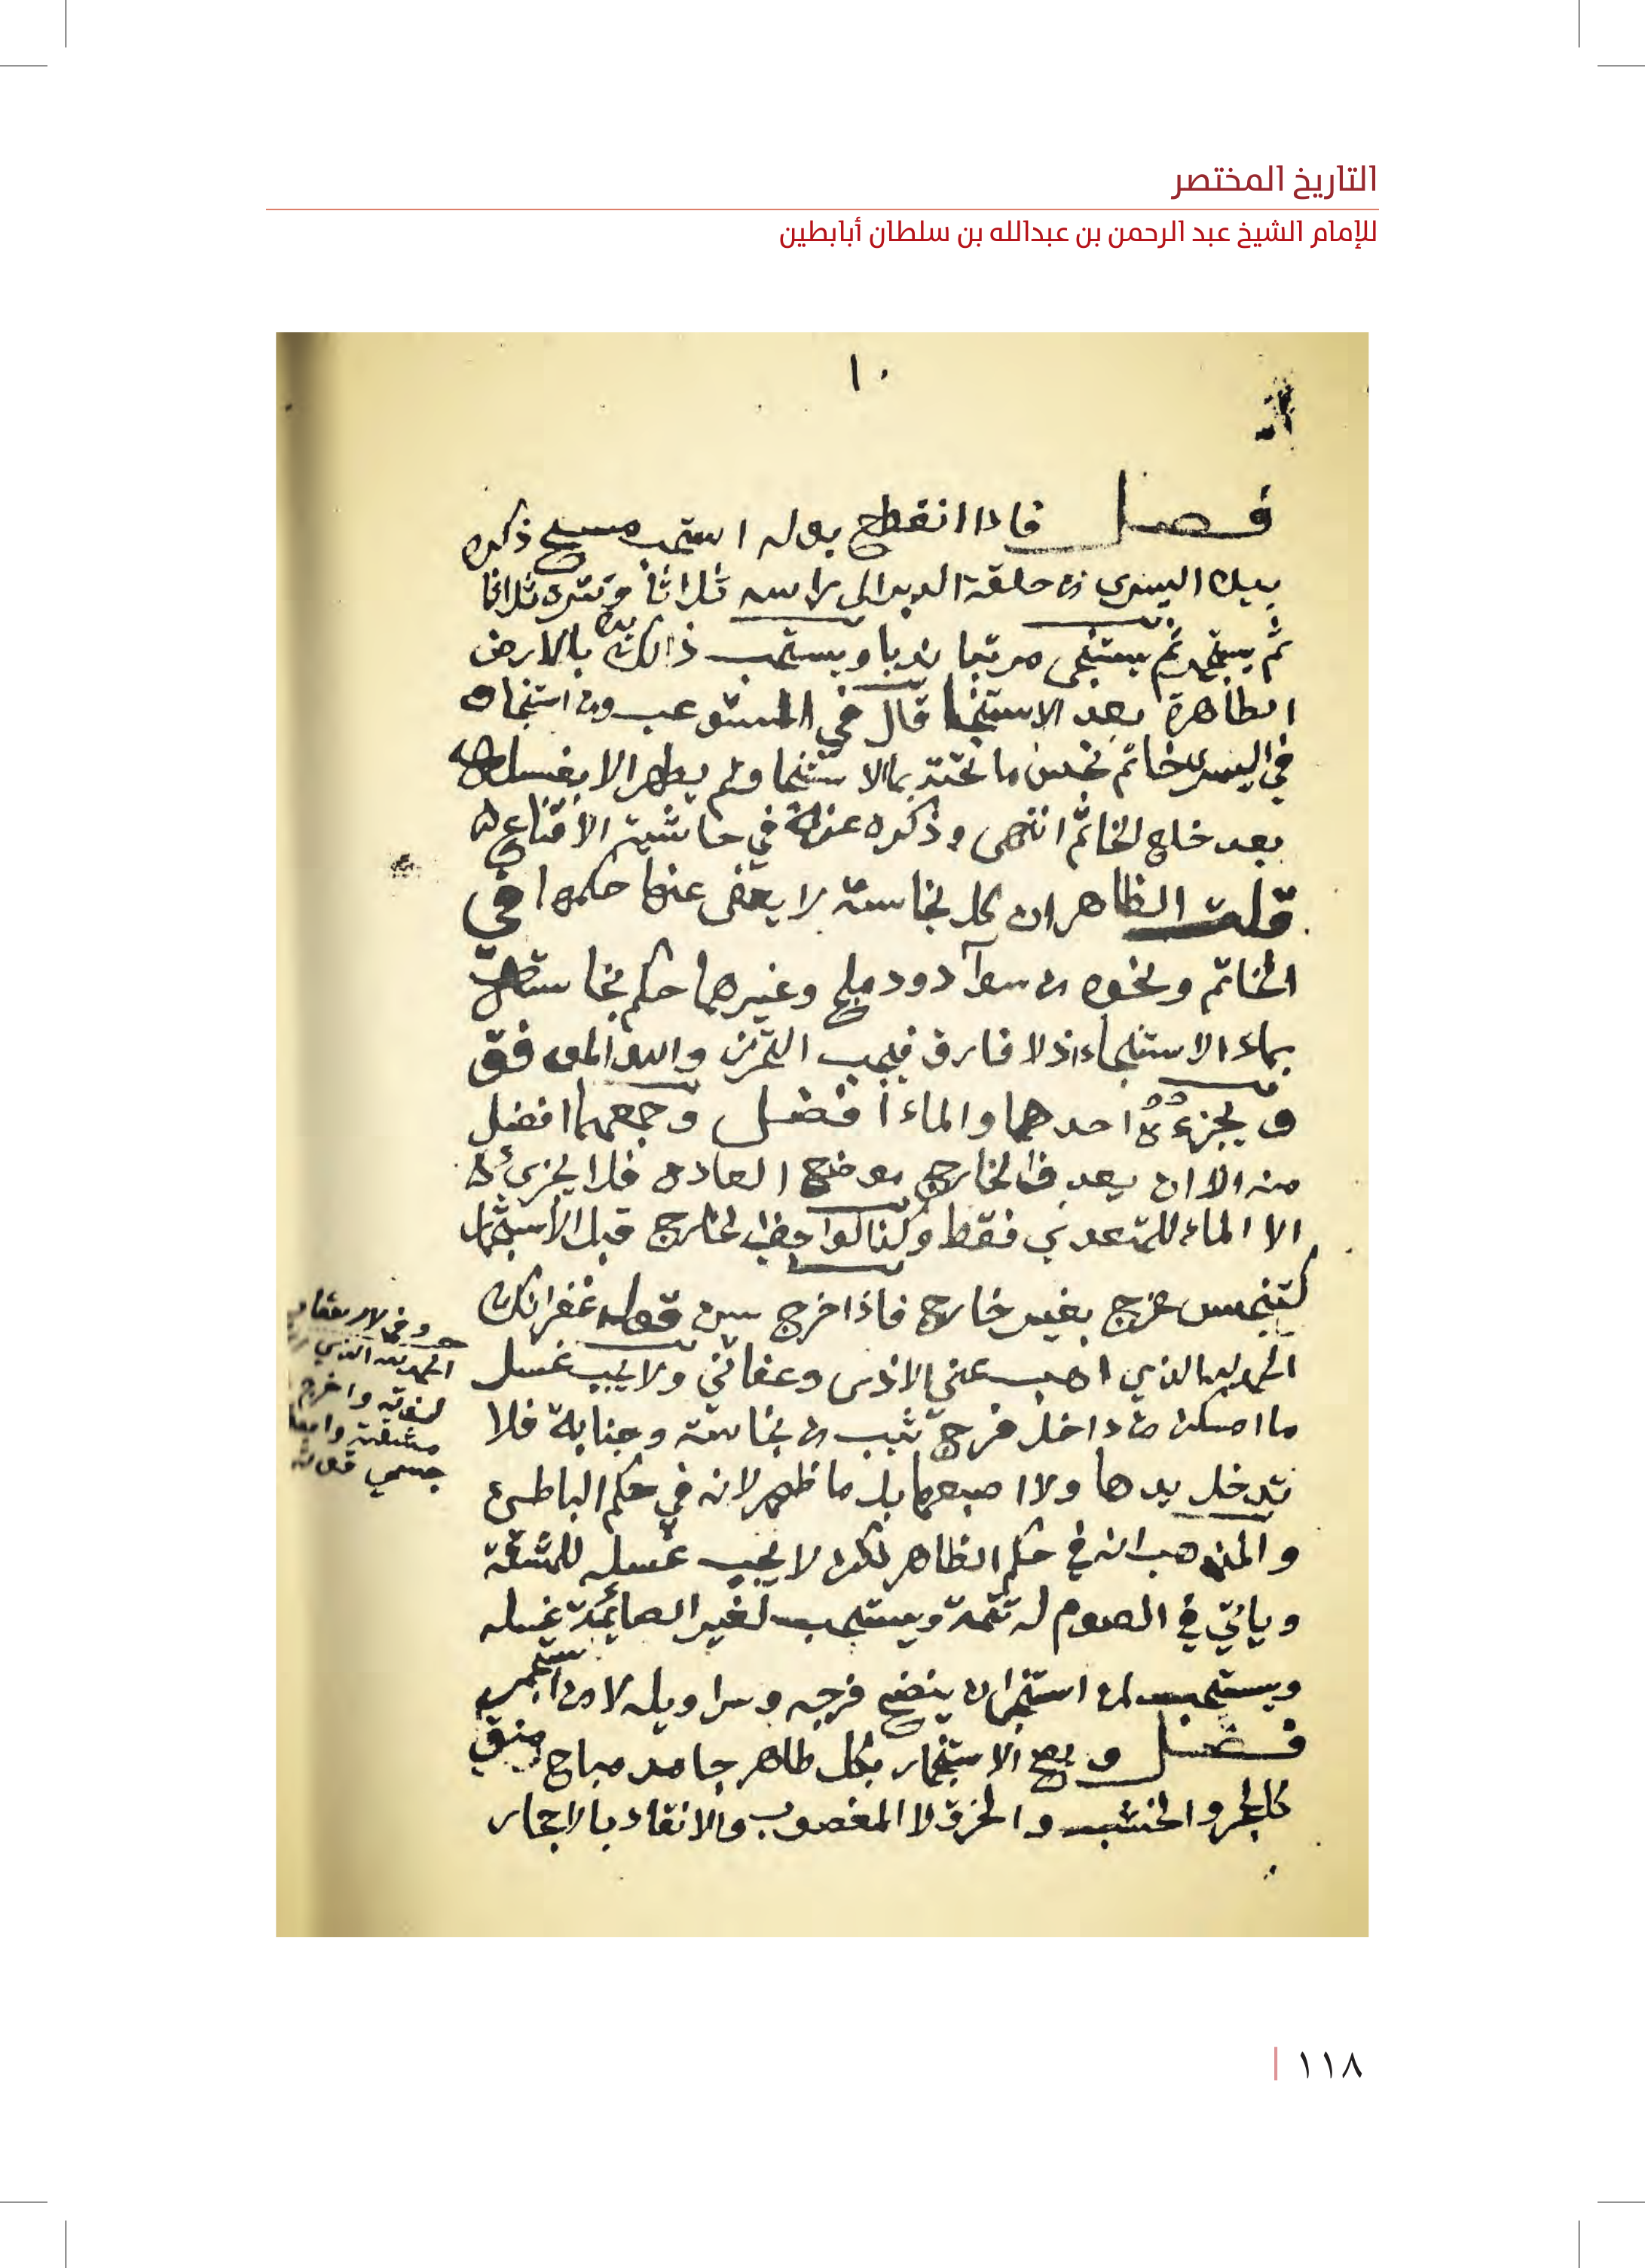 التاريخ المختصر
للإمام الشيخ عبد الرحمن بن عبدالله بن سلطان أبابطين
١٠
فصل فاذا انقطع بوله استحب مسح ذكره
بيده اليسرى من حلقة الدبر الى راسه ثلاثاً ونتره ثلاثا
ثم يستجمر ثم يستنجى مرتبا ندبا ويستحب ذلك يده بالارض
الطاهرة بعد الاستنجا قال في المستوعب ومن استنجا و
في اليسرى خاتم نجس ما تحته بماالاستنجا ولم يطهر الا بغسله
بعد خلع الخاتم انتهى وذكره عنه في حاشية الاقناع
قلت الظاهر ان كل نجاسة لا يعفى عنها حكمها في
الخاتم ونحوه من سوآر ودملج وغيرهما حكم نجاسة
بماء الاستنجاء اذ لا فارق فيجب التحرز والله الموفق
ويجزءه احدهما والماء افضل وجمعهما افضل
منه الا ان يعدو الخارج موضع العاده فلا يجزئه
الا الماء للمتعدي فقط وكذا لو جف الخارج قبل الاستجمار
كتنجس مخرج بغير خارج فاذا خرج سن قوله غفرانك
الحمد لله الذي اذهب عني الاذى وعفاني ولا يجب غسل
ما امكن من داخل فرج ثيب من نجاسة وجنابة فلا
تدخل يدها ولا اصبعها بل ما ظهر لانه في حكم الباطن
والمذهب انه في حكم الظاهر لكن لا يجب غسله للمشقة
وياتي في الصوم له تتمة ويستحب لغير الصائمة غسله
ويستحب لمن استنجا ان ينضح فرجه وسراويله لا من استجمر
فصل ويصح الاستجمار بكل طاهر جامد مباح منق
كالحجر والخشب والخرق لا المغصوب والانقاء بالاحجار
الحمد لله الذي
واخرج
جسمي قوته
١١٨